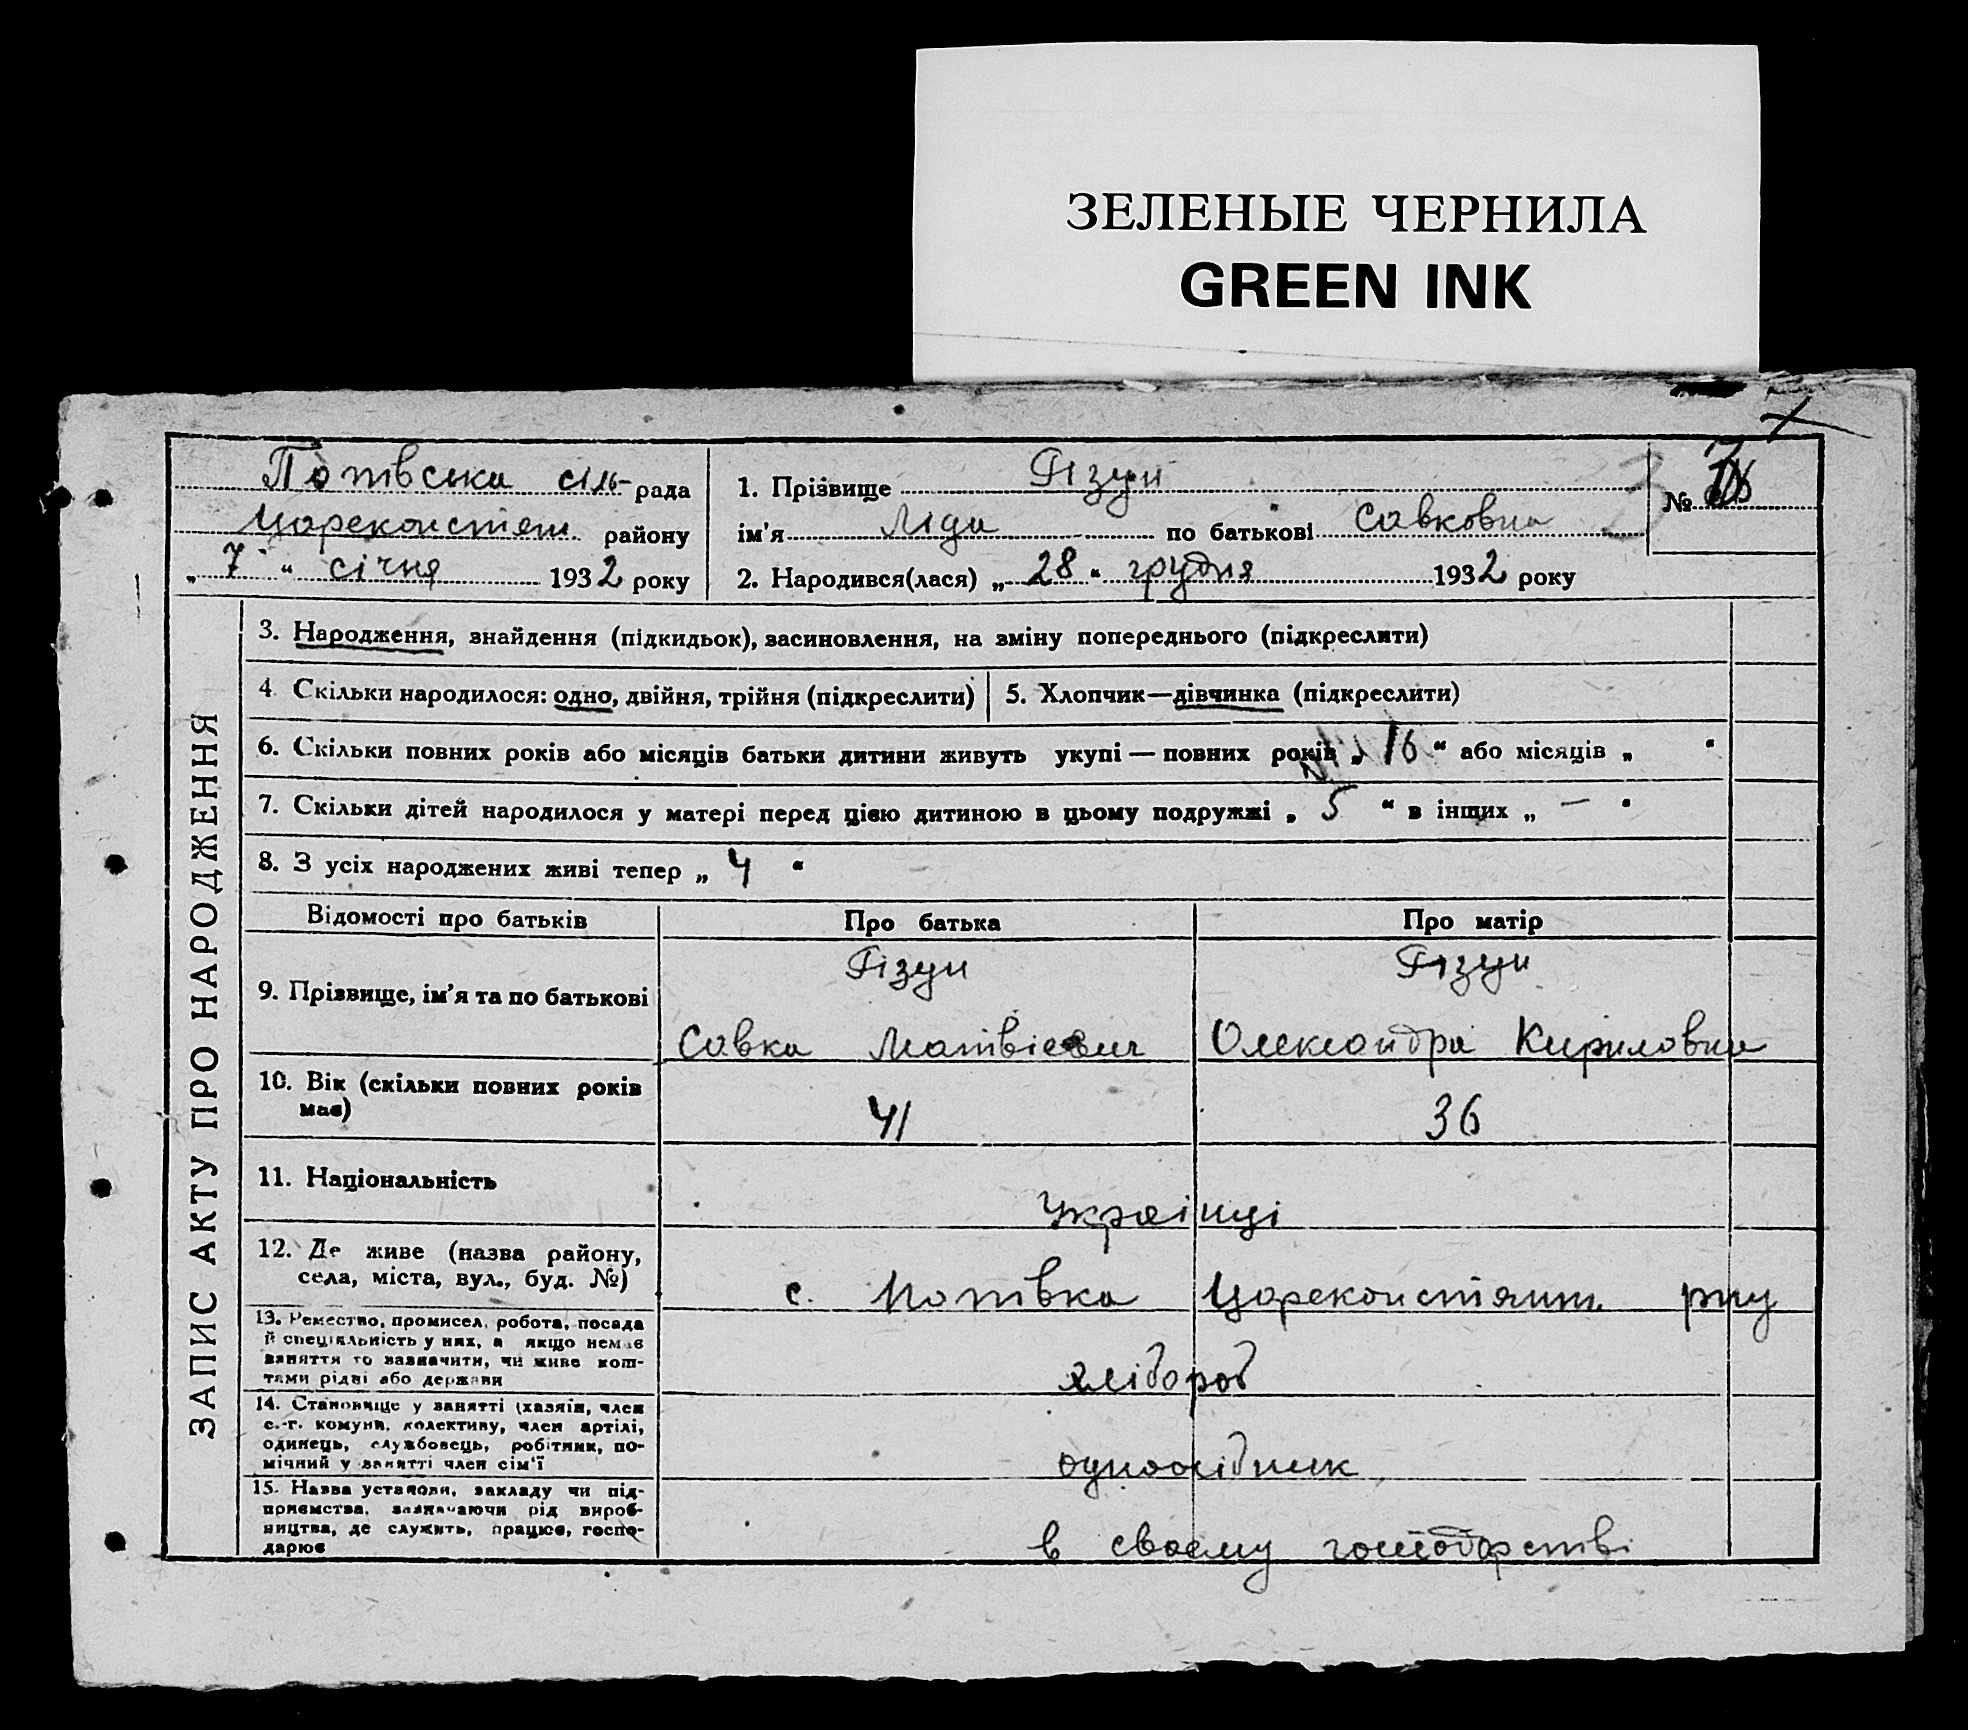 ЗЕЛЕНЫЕ ЧЕРНИЛА
GREEN INK
Потівська сіль- рада
Цареконстян. району
„ 7 “ січня 1932 року
1. Прізвище Гізун
ім'я Ліда по батькові Савковна
2. Народився(лася) „ 28 “ грудня 1932 року
3
№
ЗАПИС АКТУ ПРО НАРОДЖЕННЯ
3. Народження, знайдення (підкидьок), засиновлення, на зміну попереднього (підкреслити)
4 Скільки народилося: одно, двійня, трійня (підкреслити)
5. Хлопчик—дівчинка (підкреслити)
6. Скільки повних років або місяців батьки дитини живуть укупі — повних років „ 16 “ або місяців „ “
7. Скільки дітей народилося у матері перед цією дитиною в цьому подружжі „ 5 “ в інших „ — “
8. З усіх народжених живі тепер „ 4 “
Відомості про батьків
Про батька
Про матір
9. Прізвище, ім'я та по батькові
Гізун
Савка Матвієвич
Гізун
Олександра Кириловна
10. Вік (скільки повних років
має)
41
36
11. Національність
Українці
12. Де живе (назва району,
села, міста, вул., буд. №)
с. Потівка Цареконстянт. рну
13. Ремество, промисел, робота, посада
й спеціяльність у них, а якщо немає
заняття то зазначити, чи живе кош-
тами рідні або держави
хлібороб
14. Становище у занятті (хазяїн, член
с.-г. комуни, колективу, член артілі,
одинець, службовець, робітник, по-
мічний у занятті член сім'ї
одноосібник
15. Назва установи, закладу чи під-
приємства, зазначаючи рід вироб-
ництва, де служить, працює, госпо-
дарює
в своєму господарстві